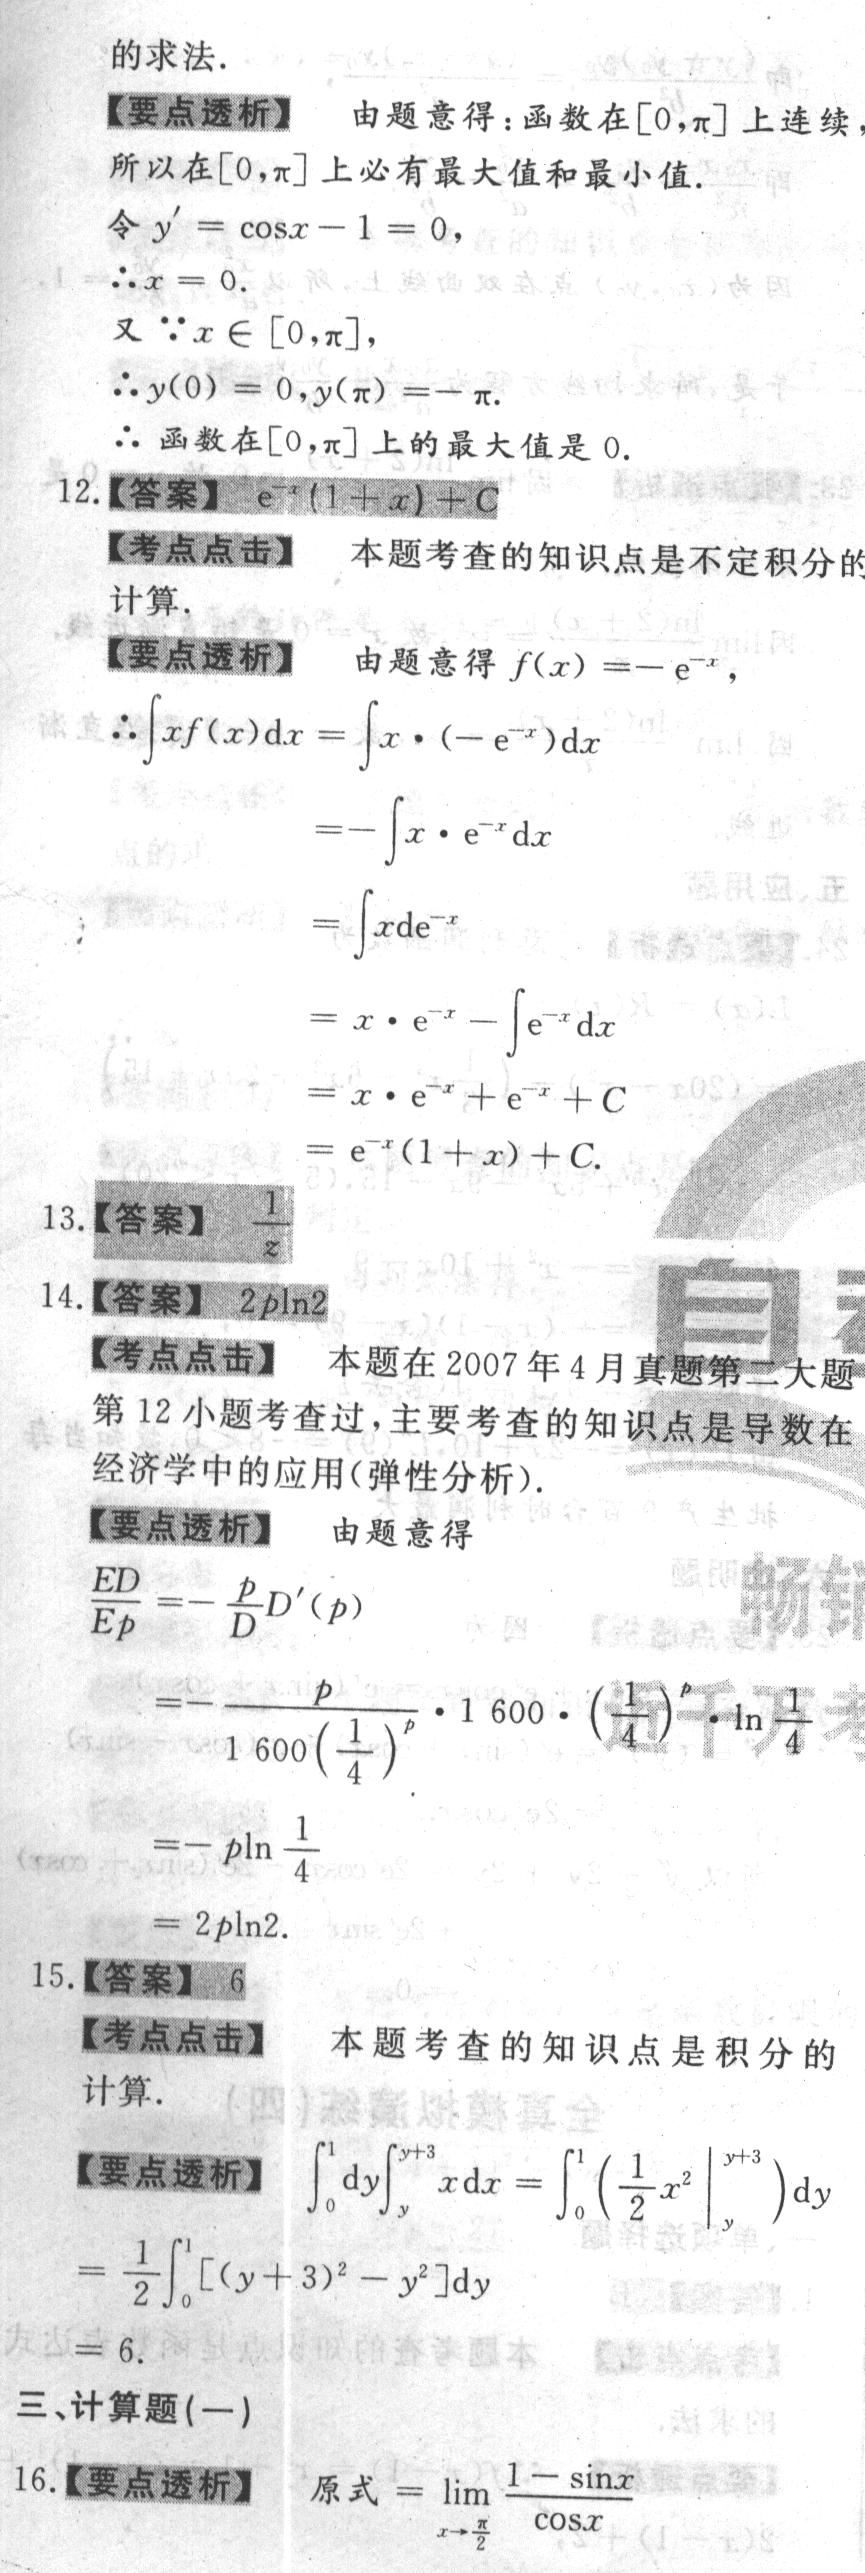 的求法.
【要点透析】 由题意得:函数在[0,π]上连续,
所以在[0,π]上必有最大值和最小值.
令 y′ = cosx − 1 = 0,
∴x = 0.
又 ∵x ∈ [0,π],
∴y(0) = 0,y(π) =− π.
∴ 函数在[0,π]上的最大值是 0.
12.【答案】 e⁻ˣ(1+x)+C
【考点点击】 本题考查的知识点是不定积分的
计算.
【要点透析】 由题意得 f(x) =− e⁻ˣ,
∴∫xf(x)dx = ∫x·(− e⁻ˣ)dx
=−∫x·e⁻ˣdx
= ∫xde⁻ˣ
= x·e⁻ˣ − ∫e⁻ˣdx
= x·e⁻ˣ + e⁻ˣ + C
= e⁻ˣ(1+x)+C.
13.【答案】 1/z
14.【答案】 2pln2
【考点点击】 本题在 2007 年 4 月真题第二大题
第 12 小题考查过,主要考查的知识点是导数在
经济学中的应用(弹性分析).
【要点透析】 由题意得
ED/Ep =− p/D D′(p)
=− p/(1 600(1/4)ᵖ) · 1 600 · (1/4)ᵖ · ln 1/4
=− pln 1/4
= 2pln2.
15.【答案】 6
【考点点击】 本题考查的知识点是积分的
计算.
【要点透析】 ∫₀¹dy∫_y^{y+3} xdx = ∫₀¹(1/2 x² |_y^{y+3})dy
= 1/2 ∫₀¹[(y+3)² − y²]dy
= 6.
三、计算题(一)
16.【要点透析】 原式 = lim_{x→π/2} (1−sinx)/cosx
自考
畅销